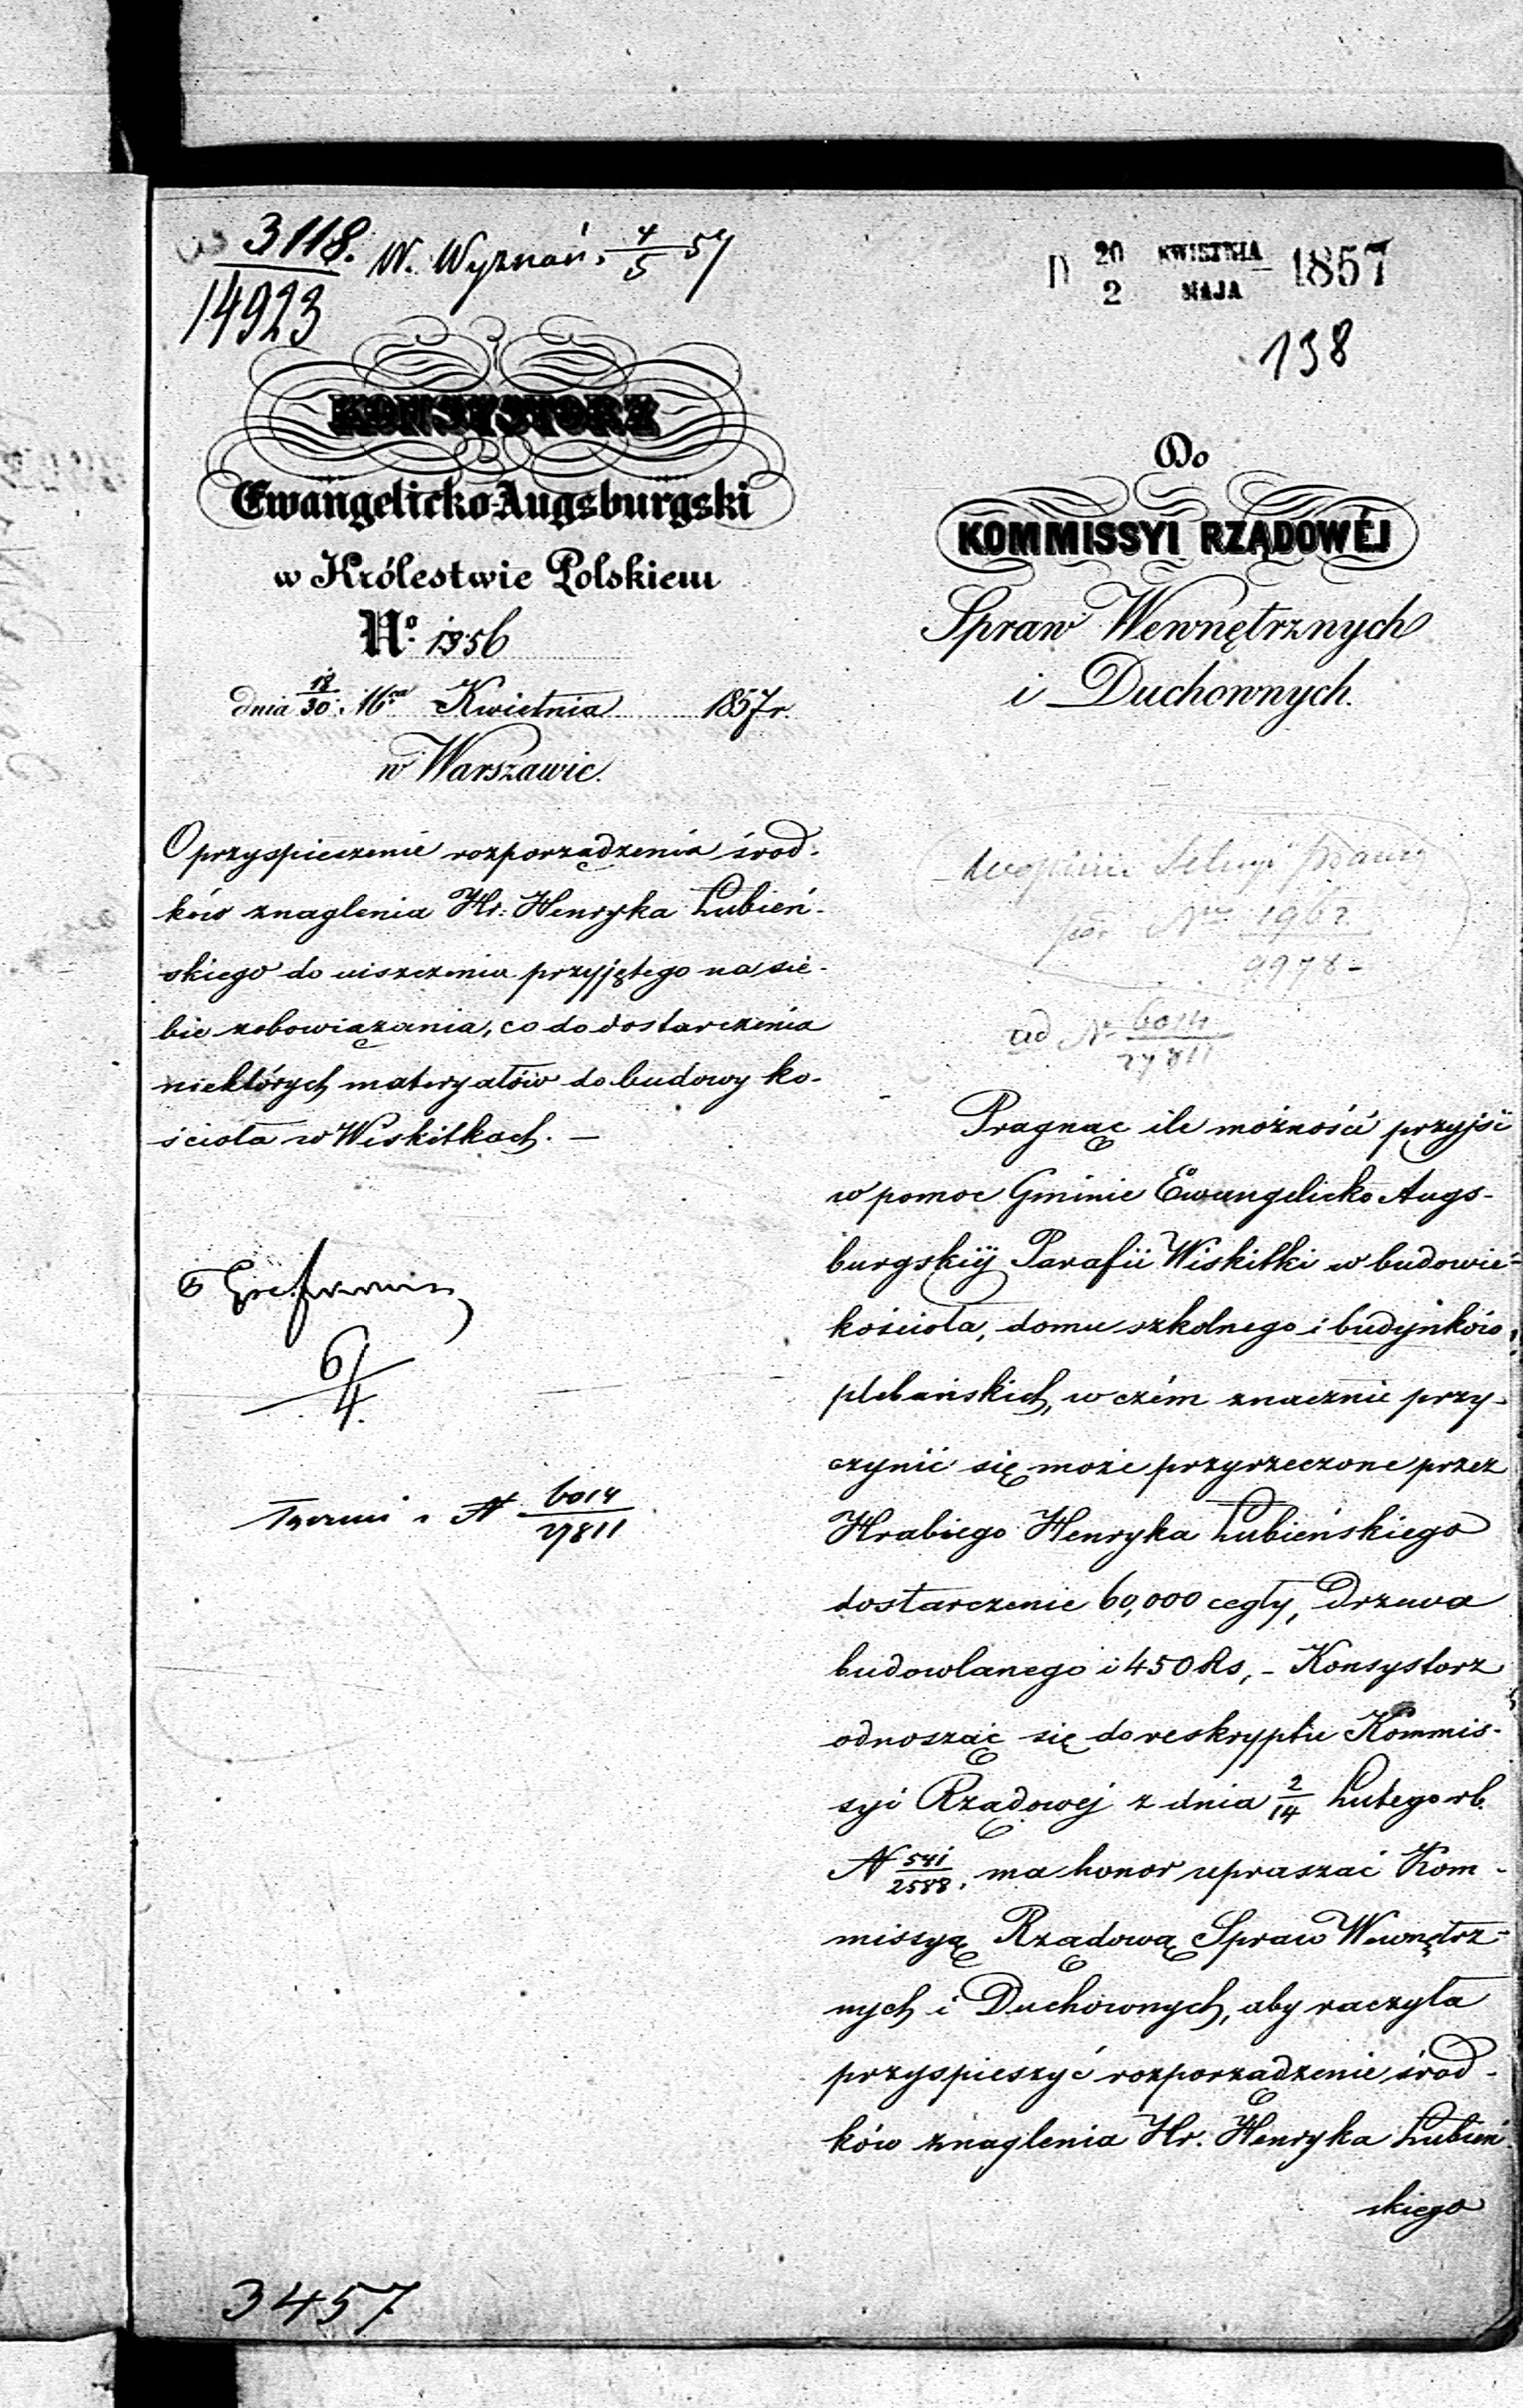 3118.
14923
W. Wyznań. 4/5 57
D 20 KWIETNIA
2 MAJA 1857
138
KONSYSTORZ
Ewangelicko-Augsburgski
w Królestwie Polskiem
No. 1356
dnia 18/30. 16ga Kwietnia 1857 r.
w Warszawie.
O przyspieszenie rozporządzenia środ-
ków znaglenia Hr: Henryka Łubień-
skiego do uiszczenia przyjętego na sie-
bie zobowiązania, co do dostarczenia
niektórych materyałów do budowy ko-
ścioła w Wiskitkach. —
6/4
N 6014
27811
3457
Do
KOMMISSYI RZĄDOWÉJ
Spraw Wewnętrznych
i Duchownych.
9978 -
ad N 6014
27811
Pragnąc ile możności przyjść
w pomoc Gminie Ewangelicko Augs-
burgskiéj Parafii Wiskitki w budowie
kościoła, domu szkolnego i budynków
plebańskich, w czém znacznie przy-
czynić się może przyrzeczone przez
Hrabiego Henryka Łubieńskiego
dostarczenie 60,000 cegły, Drzewa
budowlanego i 450 Rs, - Konsystorz
odnosząc się do reskryptu Kommis-
syi Rządowéj z dnia 2/14 Lutego rb.
N 541/2588. ma honor upraszać Kom-
missyą Rządową Spraw Wewnętrz-
nych i Duchownych, aby raczyła
przyspieszyć rozporządzenie środ-
ków znaglenia Hr. Henryka Łubień-
skiego